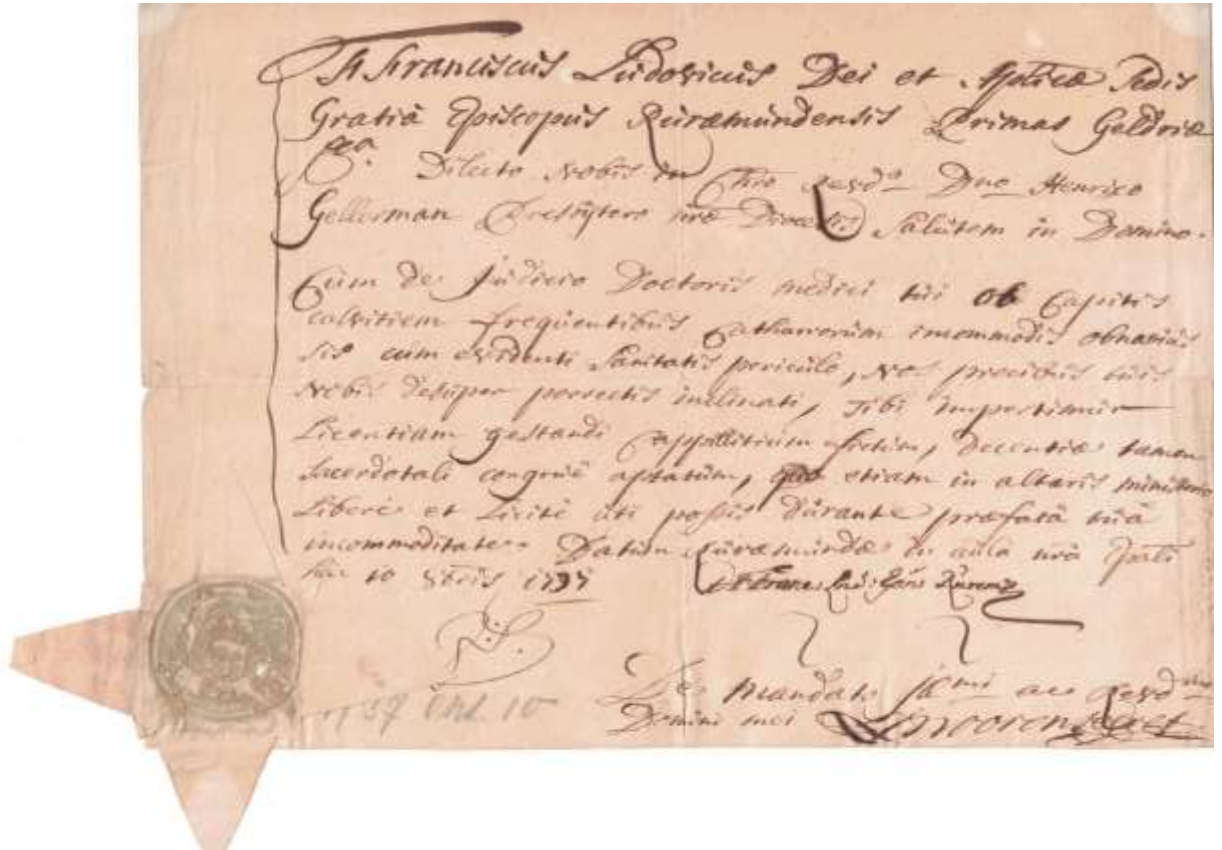 Fr Franciscus Ludovicus Dei et Aplicæ Sedis
Gratiâ Episcopus Ruræmundensis Primas Geldriæ
&ca.
Dilecto Nobis in Chro Revdo Dno Henrico
Gellerman Presbytero nræ Diocesis Salutem in Domino.
Cum de Judicio Doctoris medici tui ob Capitis
calvitiem frequentibus Catharrorum incommodis obnoxius
sis cum evidenti sanitatis periculo, Nos precibus tuis
Nobis desuper porrectis inclinati, Tibi impertimur
Licentiam gestandi Cappillitium fictum, Decentiæ tamen
Sacerdotali congruè aptatum, quo etiam in altaris ministerio
Liberè et Licitè uti possis durante præfatâ tuâ
incommoditate. Datum Ruræmundæ in aula nrâ Epali
hac 10 1737
Franc: Lud: Epus Ruræm
De Mandato ac Revdmi
Domini mei secret
1737 10